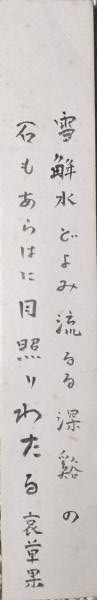 雪解水どよみ流るる深谿の
石もあらはに日照りわたる 哀草果